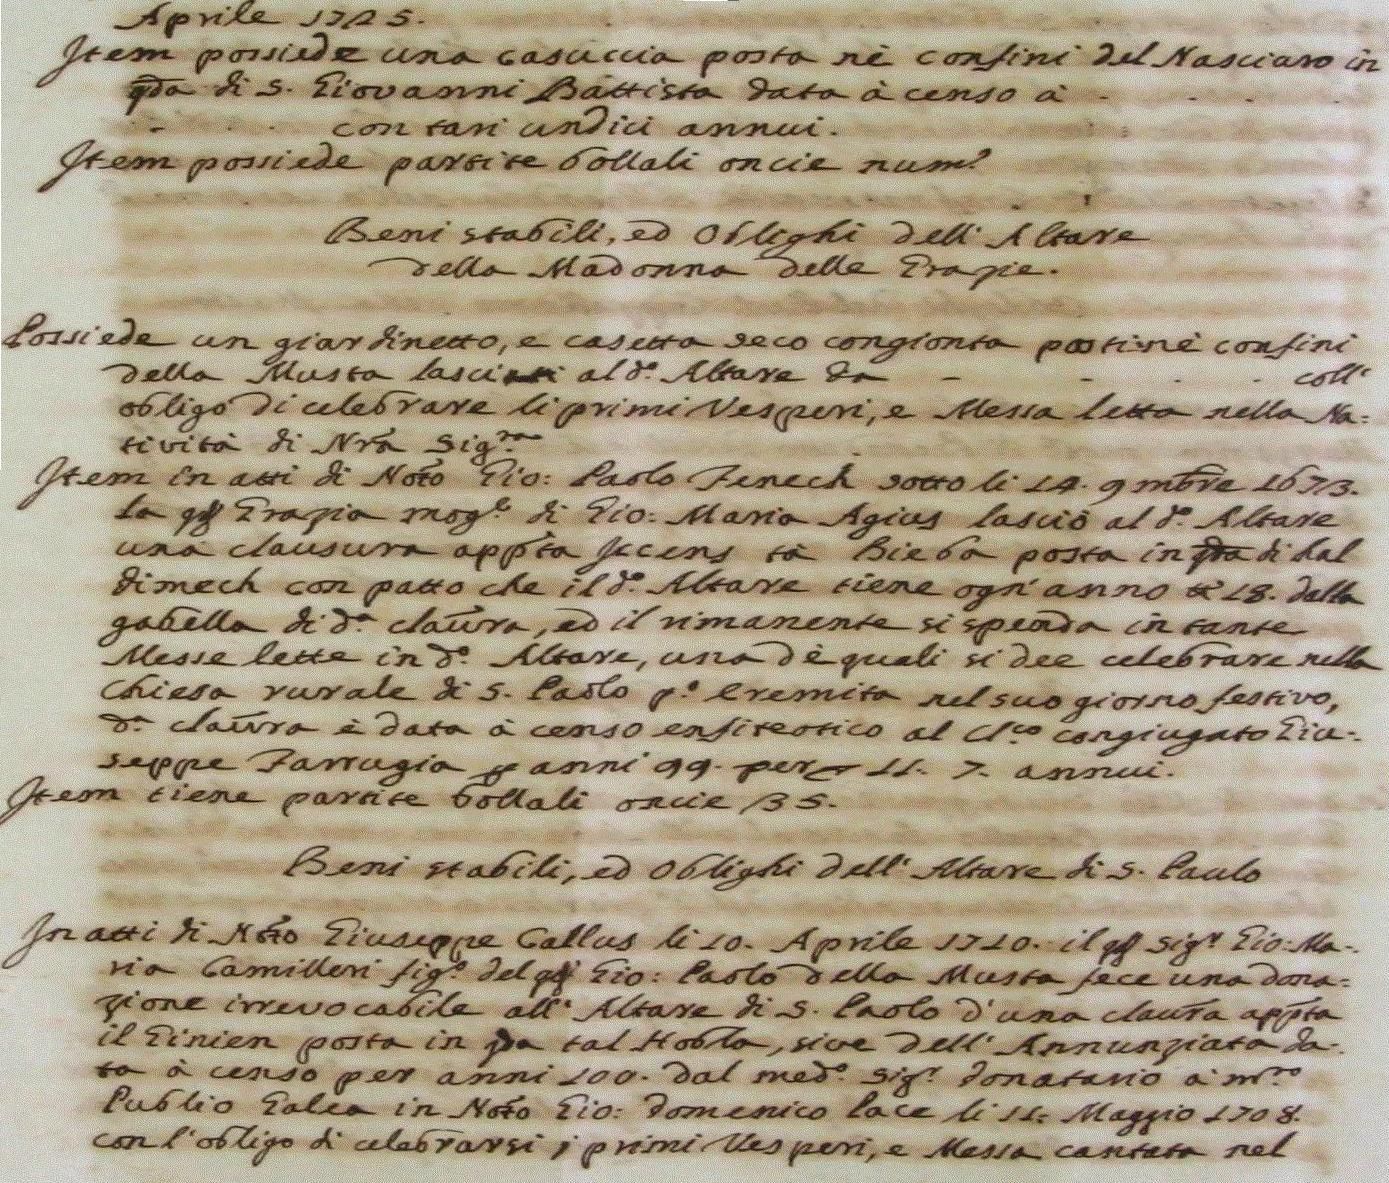 Aprile 1725.
Item possiede una casuccia posta nè confini del Nasciaro in
qda di S. Giovanni Battista data à censo à - . . .
- . . con tarì undici annui.
Item possiede partite bollali oncie num.º
Beni stabili, ed Oblighi dell' Altare
della Madonna delle Grazie.
Possiede un giardinetto, e casetta seco congionta posti nè confini
della Musta lasciati al d.º Altare da - - . . coll'
obligo di celebrare li primi Vesperi, e Messa letta nella Na=
tività di Nrã Sig.ra
Item in atti di Notõ Gio: Paolo Fenech sotto li 14. 9mbre 1673.
la qq Grazia mog.e di Gio: Maria Agius lasciò al d.º Altare
una clausura appta Iccens ta Bieba posta in qda di hal
dimech con patto che il d.º Altare tiene ogn' anno 18. dalla
gabella di d.a claũra, ed il rimanente si spenda in tante
Messe lette in d.º Altare, una dè quali si dee celebrare nella
Chiesa rurale di S. Paolo p.º Eremita nel suo giorno festivo,
d.a claũra è data à censo enfiteotico al Cl.co congiugato Giu-
seppe Farrugia p anni 99. per 11. 7. annui.
Item tiene partite bollali oncie 35.
Beni stabili, ed Oblighi dell' Altare di S. Paulo
In atti di Notõ Giuseppe Callus li 10. Aprile 1710. il qq sig.r Gio: Ma-
ria Camilleri fig.º del qq Gio: Paolo della Musta fece una dona=
zione irrevocabile all' Altare di S. Paolo d'una claũra appta
il Ginien posta in qda tal Hobla, sive dell' Annunziata da-
ta à censo per anni 100. dal med.º Sig.r donatario à m.ro
Publio Galea in Notõ Gio: Domenico Pace li 11. Maggio 1708.
con l'obligo di celebrarsi j primi Vesperi, e Messa cantata nel